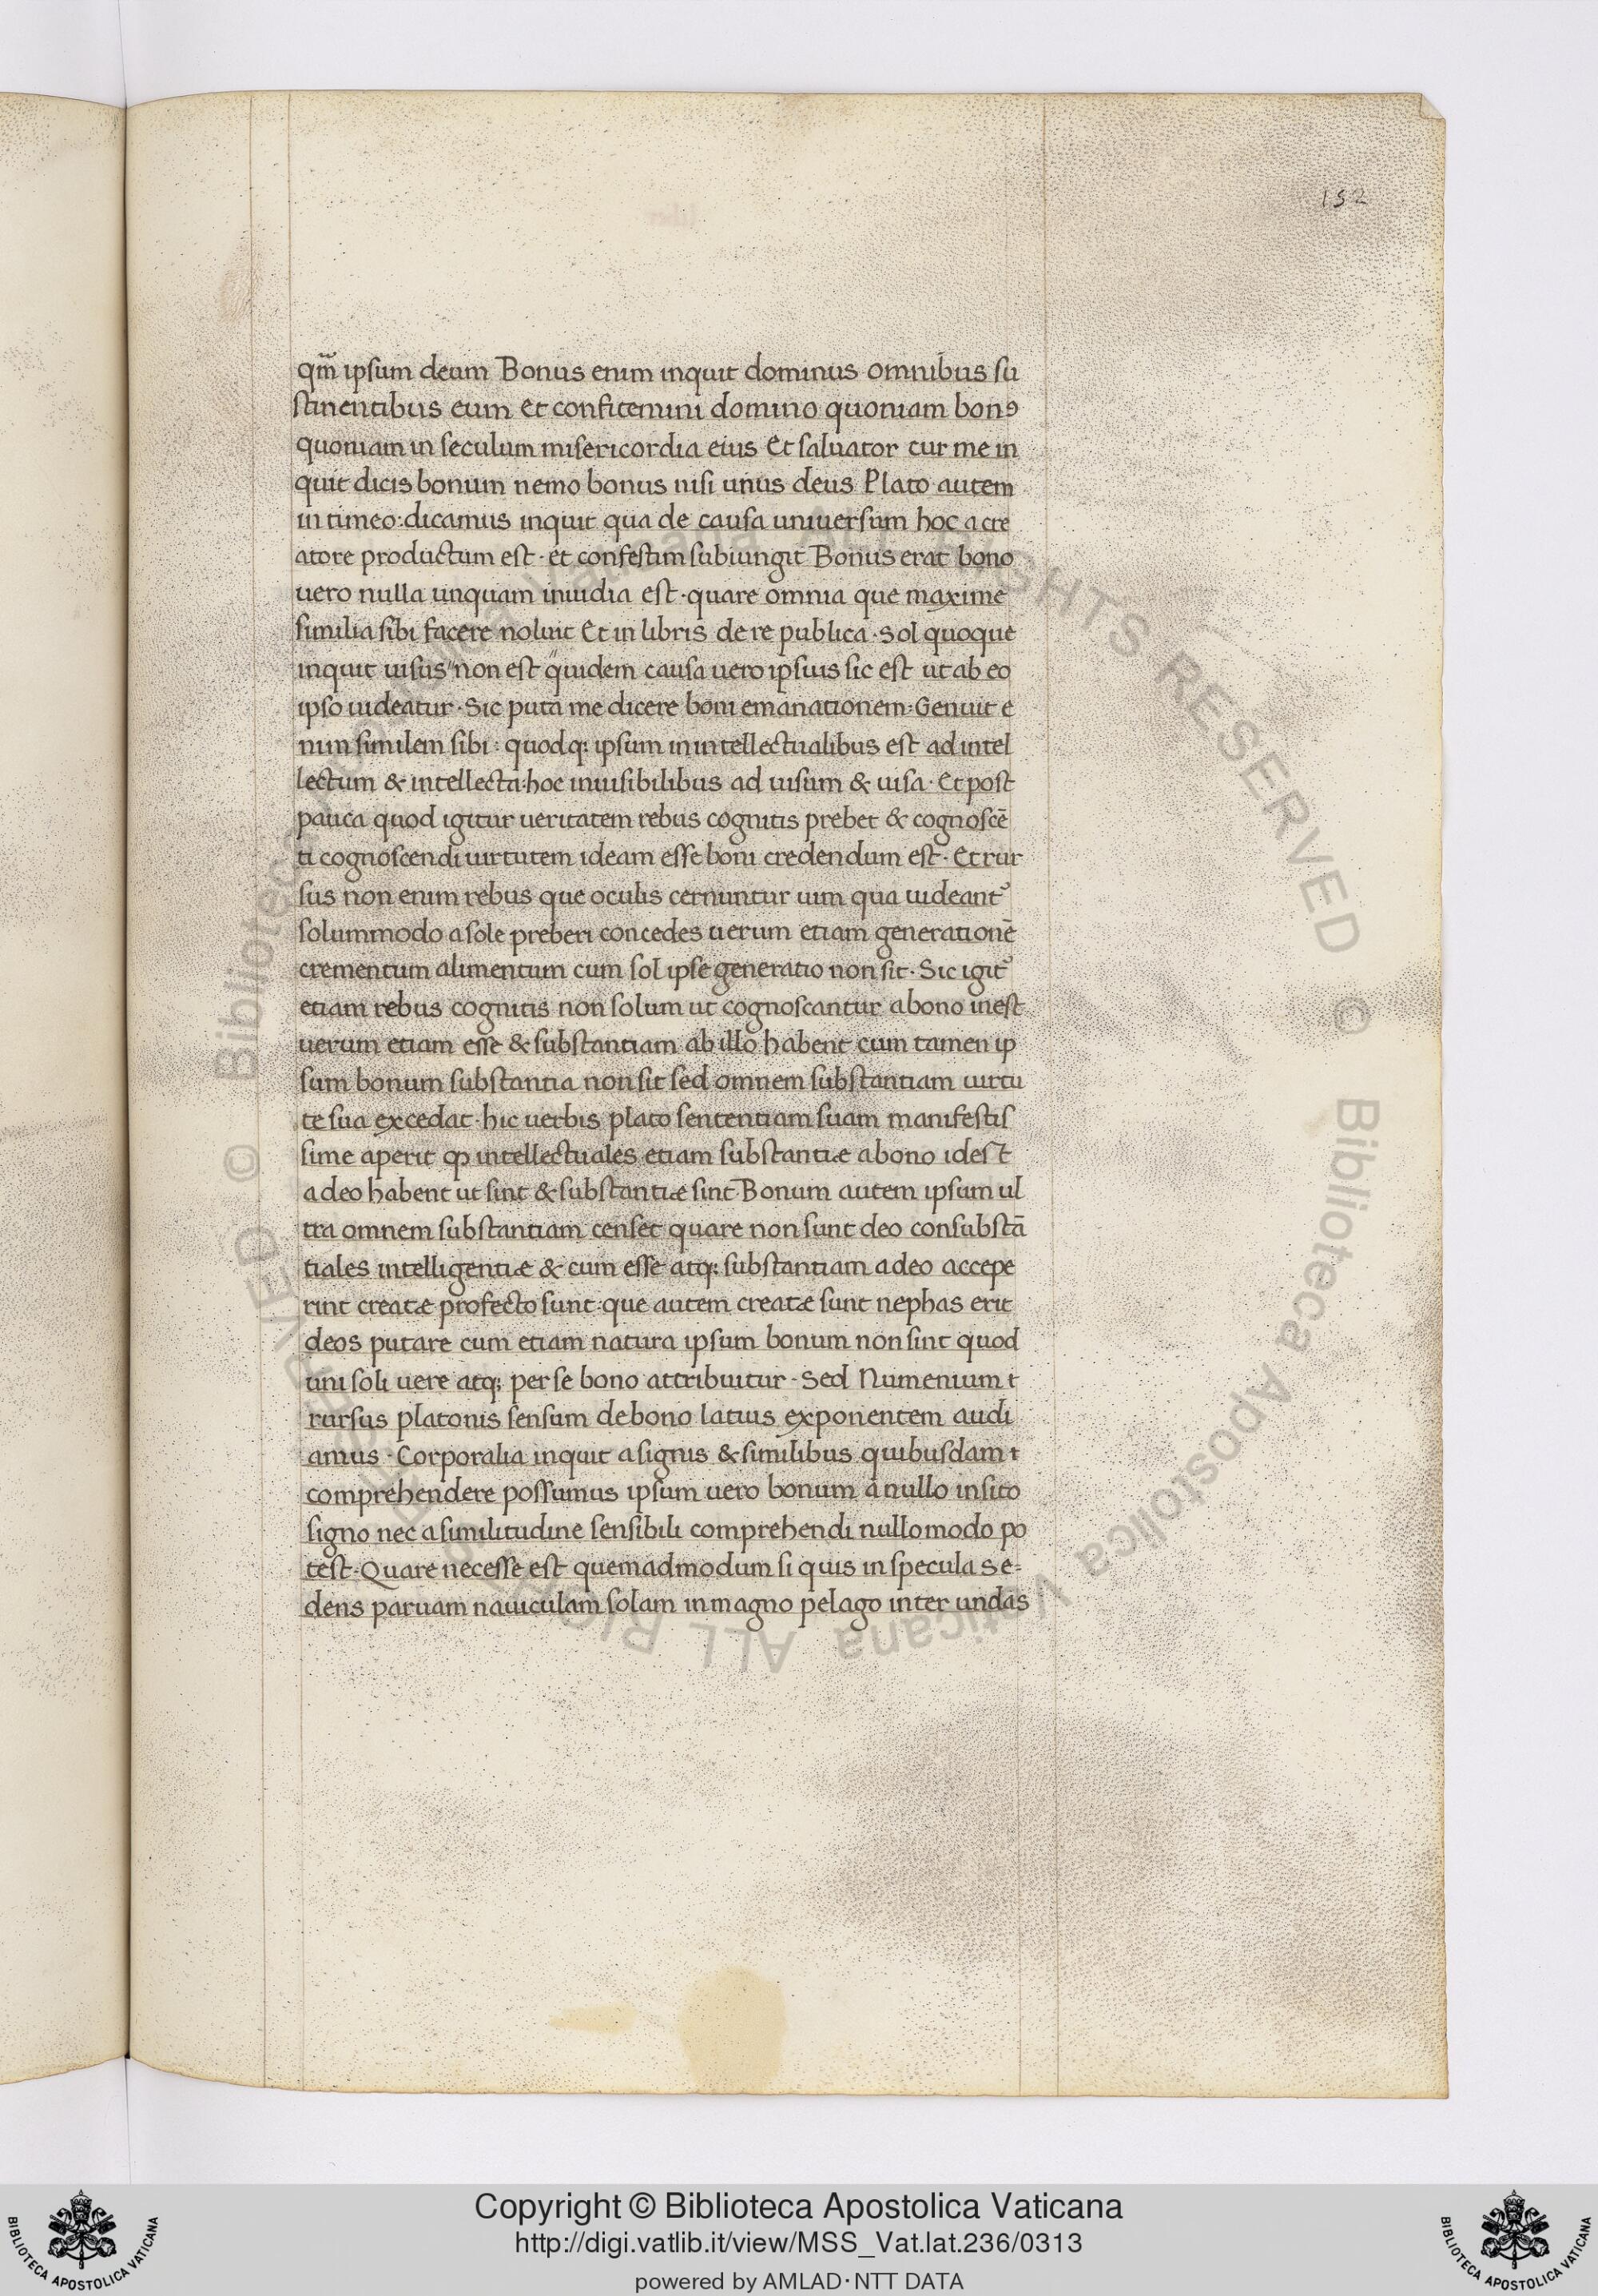 152
qm̃ ipsum deum Bonus enim inquit dominus omnibus su
stinentibus eum Et confitemini domino quoniam bonꝯ
quoniam in seculum misericordia eius Et saluator cur me in
quit dicis bonum nemo bonus nisi unus deus Plato autem
in timeo: dicamus inquit qua de causa uniuersum hoc a cre
atore productum est · et confestim subiungit Bonus erat bono
uero nulla unquam inuidia est · quare omnia que maxime
similia sibi facere noluit Et in libris de re publica · Sol quoque
inquit uisus" non est "quidem causa uero ipsius sic est ut ab eo
ipso uideatur · Sic puta me dicere boni emanationem: Genuit e
nim similem sibi: quodq; ipsum in intellectualibus est ad intel
lectum & intellecta: hoc inuisibilibus ad uisum & uisa · Et post
pauca quod igitur ueritatem rebus cognitis prebet & cognoscē
ti cognoscendi uirtutem ideam esse boni credendum est · Et rur
sus non enim rebus que oculis cernuntur uim qua uideant᷑
solummodo a sole preberi concedes uerum etiam generationē
crementum alimentum cum sol ipse generatio non sit · Sic igit᷑
etiam rebus cognitis non solum ut cognoscantur a bono inest
uerum etiam esse & substantiam ab illo habent cum tamen ip
sum bonum substantia non sit sed omnem substantiam uirtu
te sua excedat · hic uerbis plato sententiam suam manifestis
sime aperit ꝙ intellectuales etiam substantiæ a bono idest
a deo habent ut sint & substantiæ sint · Bonum autem ipsum ul
tra omnem substantiam censet quare non sunt deo consubstā
tiales intelligentiæ & cum esse atq; substantiam a deo accepe
rint creatæ profecto sunt: que autem creatæ sunt nephas erit
deos putare cum etiam natura ipsum bonum non sint quod
uni soli uere atq; per se bono attribuitur · Sed Numenium t
rursus platonis sensum de bono latius exponentem audi
amus · Corporalia inquit a signis & similibus quibusdam t
comprehendere possumus ipsum uero bonum a nullo insito
signo nec a similitudine sensibili comprehendi nullo modo po
test · Quare necesse est quemadmodum si quis in specula se-
dens paruam nauiculam solam in magno pelago inter undas
© Biblioteca Apostolica Vaticana ALL RIGHTS RESERVED © Biblioteca Apostolica Vaticana ALL RIGHTS RESERVED
Copyright © Biblioteca Apostolica Vaticana
http://digi.vatlib.it/view/MSS_Vat.lat.236/0313
powered by AMLAD·NTT DATA
BIBLIOTECA APOSTOLICA VATICANA
BIBLIOTECA APOSTOLICA VATICANA